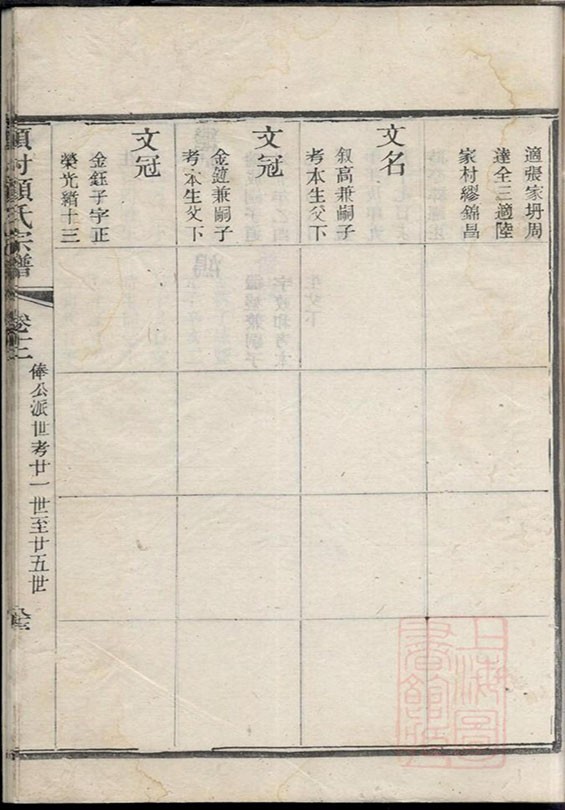 適張家坍周
達全三適陸
家村繆錦昌
文名
叙高兼嗣子
考本生父下
文冠
金鏈兼嗣子
考本生父下
文冠
金鈺子字正
榮光緒十三
項村顏氏宗譜
卷十二
俸公派世考廿一世至廿五世
上海圖
書館藏